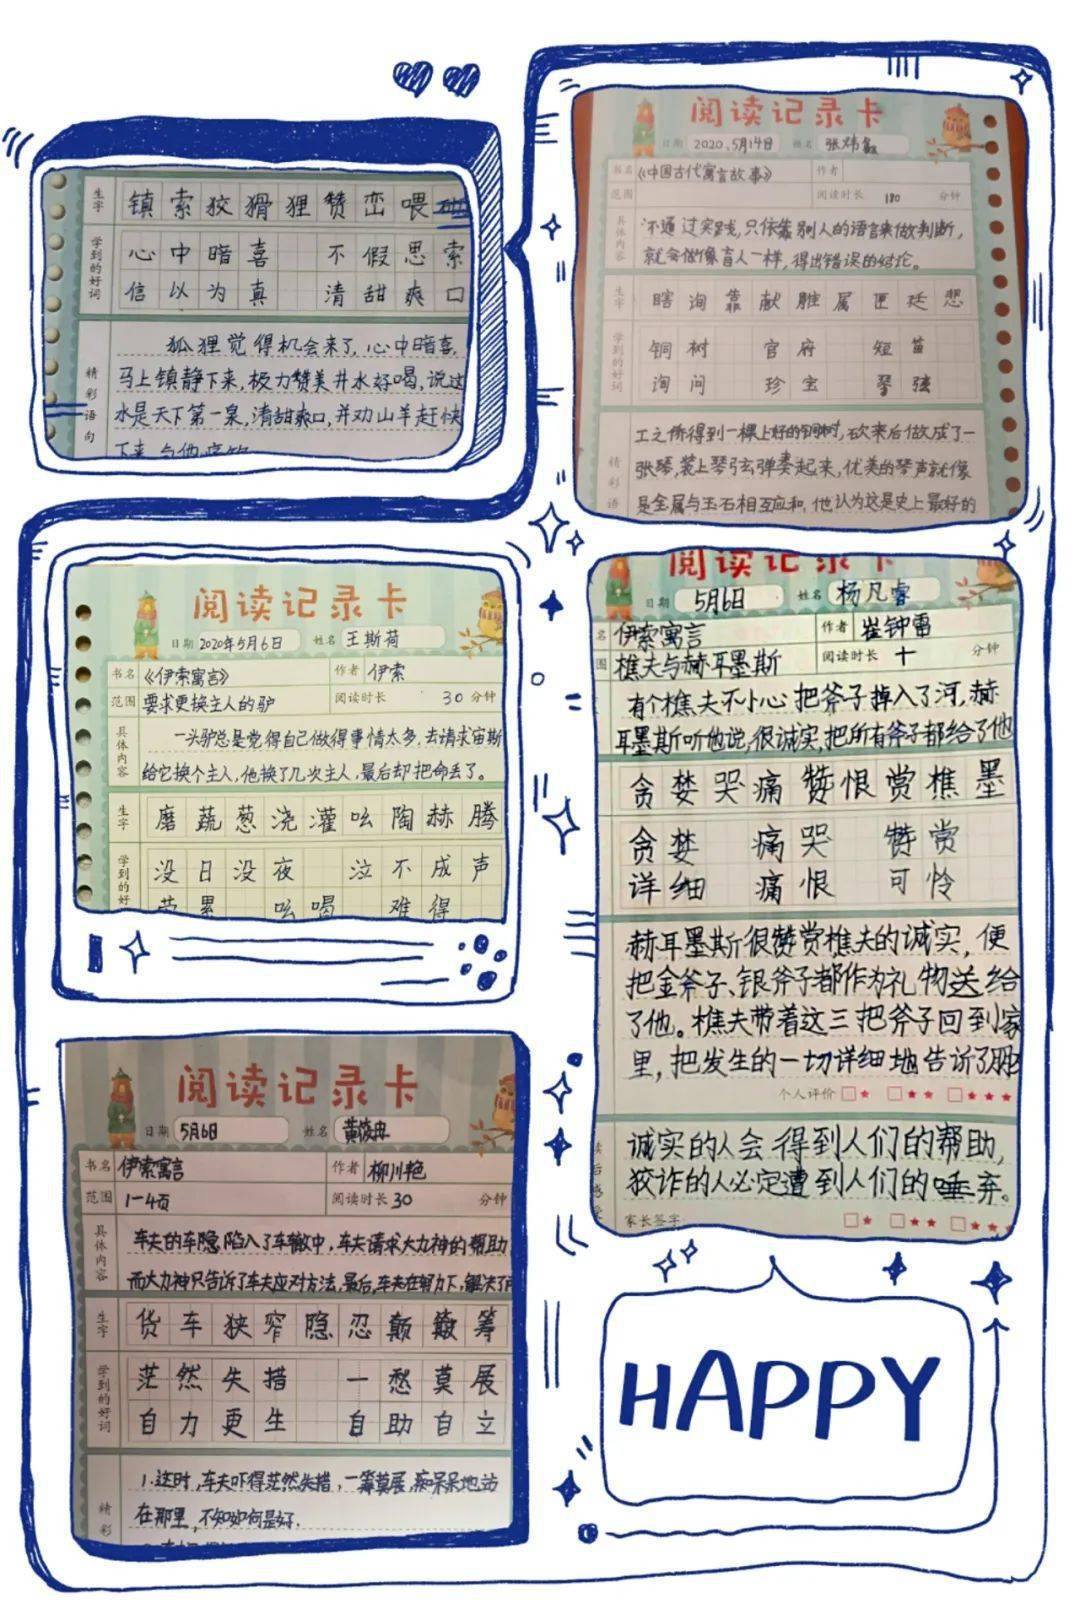 生字
镇 索 狡 猾 狸 赞 峦 喂
学到的好词
心中暗喜 不假思索
信以为真 清甜爽口
精彩语句
狐狸觉得机会来了,心中暗喜,
马上镇静下来,极力赞美井水好喝,说这
水是天下第一泉,清甜爽口,并劝山羊赶快
阅读记录卡
日期 2020.5月14日 姓名
书名 《中国古代寓言故事》 作者
范围 阅读时长 180 分钟
具体内容
不通过实践,只依靠别人的语言来做判断,
就会做像盲人一样,得出错误的结论。
生字
瞎 询 靠 献 脏 属 匣 廷 悲
学到的好词
铜树 官府 短笛
询问 珍宝 琴弦
精彩语
工之侨得到一棵上好的铜树,砍来后做成了一
张琴,装上琴弦弹奏起来,优美的琴声就像
是金属与玉石相互应和,他认为这是史上最好的
阅读记录卡
日期 2020年5月6日 姓名 王斯荷
书名 《伊索寓言》 作者 伊索
范围 要求更换主人的驴 阅读时长 30 分钟
具体内容
一头驴总是觉得自己做得事情太多,去请求宙斯
给它换个主人,他换了几次主人,最后却把命丢了。
生字
磨 蔬 葱 浇 灌 吆 陶 赫 腾
学到的好
没日没夜 泣不成声
劳累 吆喝 难得
阅读记录卡
日期 5月6日 姓名 杨凡睿
名 伊索寓言 作者 崔钟雷
围 樵夫与赫耳墨斯 阅读时长 十 分钟
有个樵夫不小心把斧子掉入了河,赫
耳墨斯听他说,很诚实,把所有斧子都给了他
贪 婪 哭 痛 赞 恨 赏 樵 墨
贪婪 痛哭 赞赏
详细 痛恨 可怜
赫耳墨斯很赞赏樵夫的诚实,便
把金斧子、银斧子都作为礼物送给
了他。樵夫带着这三把斧子回到家
里,把发生的一切详细地告诉了朋
个人评价
诚实的人会得到人们的帮助,
狡诈的人必定遭到人们的唾弃。
家长签字
阅读记录卡
日期 5月6日 姓名
书名 伊索寓言 作者 柳川艳
范围 1-4页 阅读时长 30 分钟
具体内容
车夫的车隐陷入了车辙中,车夫请求大力神的帮助
而大力神只告诉了车夫应对方法,最后,车夫在努力下,解决了
生字
货 车 狭 窄 隐 忍 颠 簸 筹
学到的好词
茫然失措 一愁莫展
自力更生 自助自立
精彩
1.这时,车夫吓得茫然失措,一筹莫展,痴呆呆地站
在那里,不知如何是好.
HAPPY